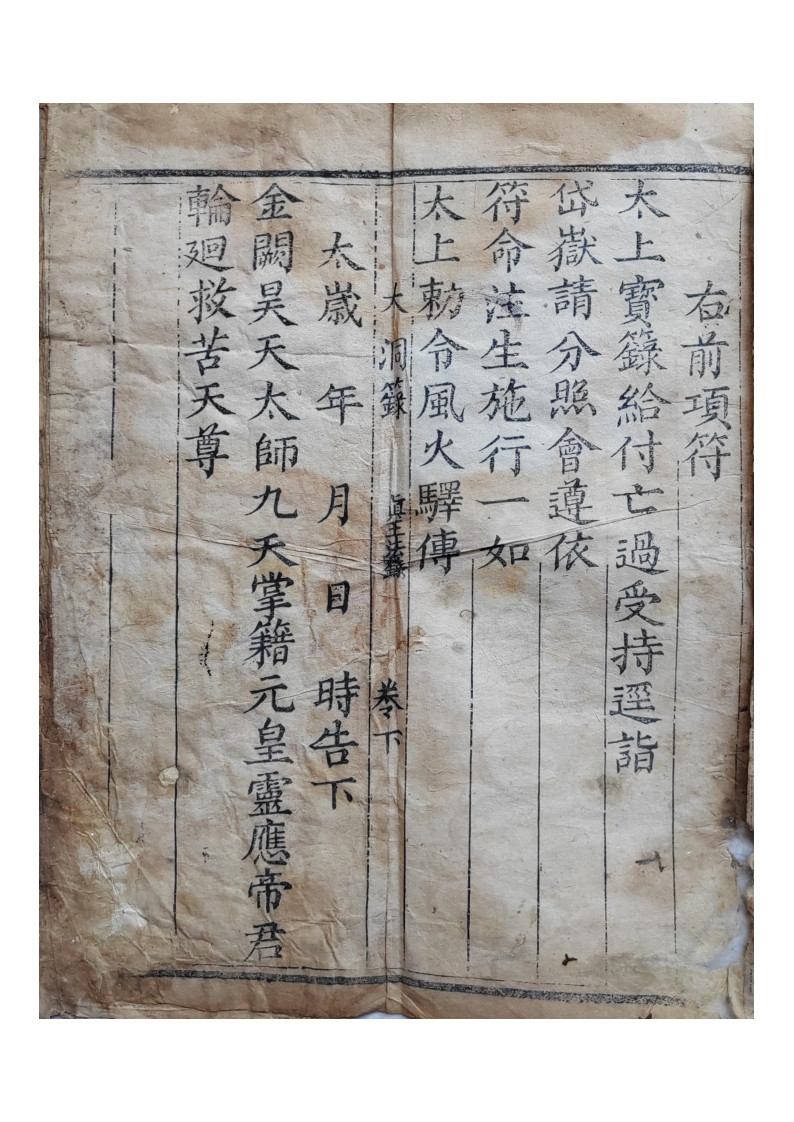 右前項符
太上寶籙給付亡過受持逕詣
岱嶽請分照會遵依
符命注生施行一如
太上勅令風火驛傳
大洞籙 眞王法籙 卷下
太歲 年 月 日 時告下
金闕昊天太師九天掌籍元皇靈應帝君
輪廻救苦天尊